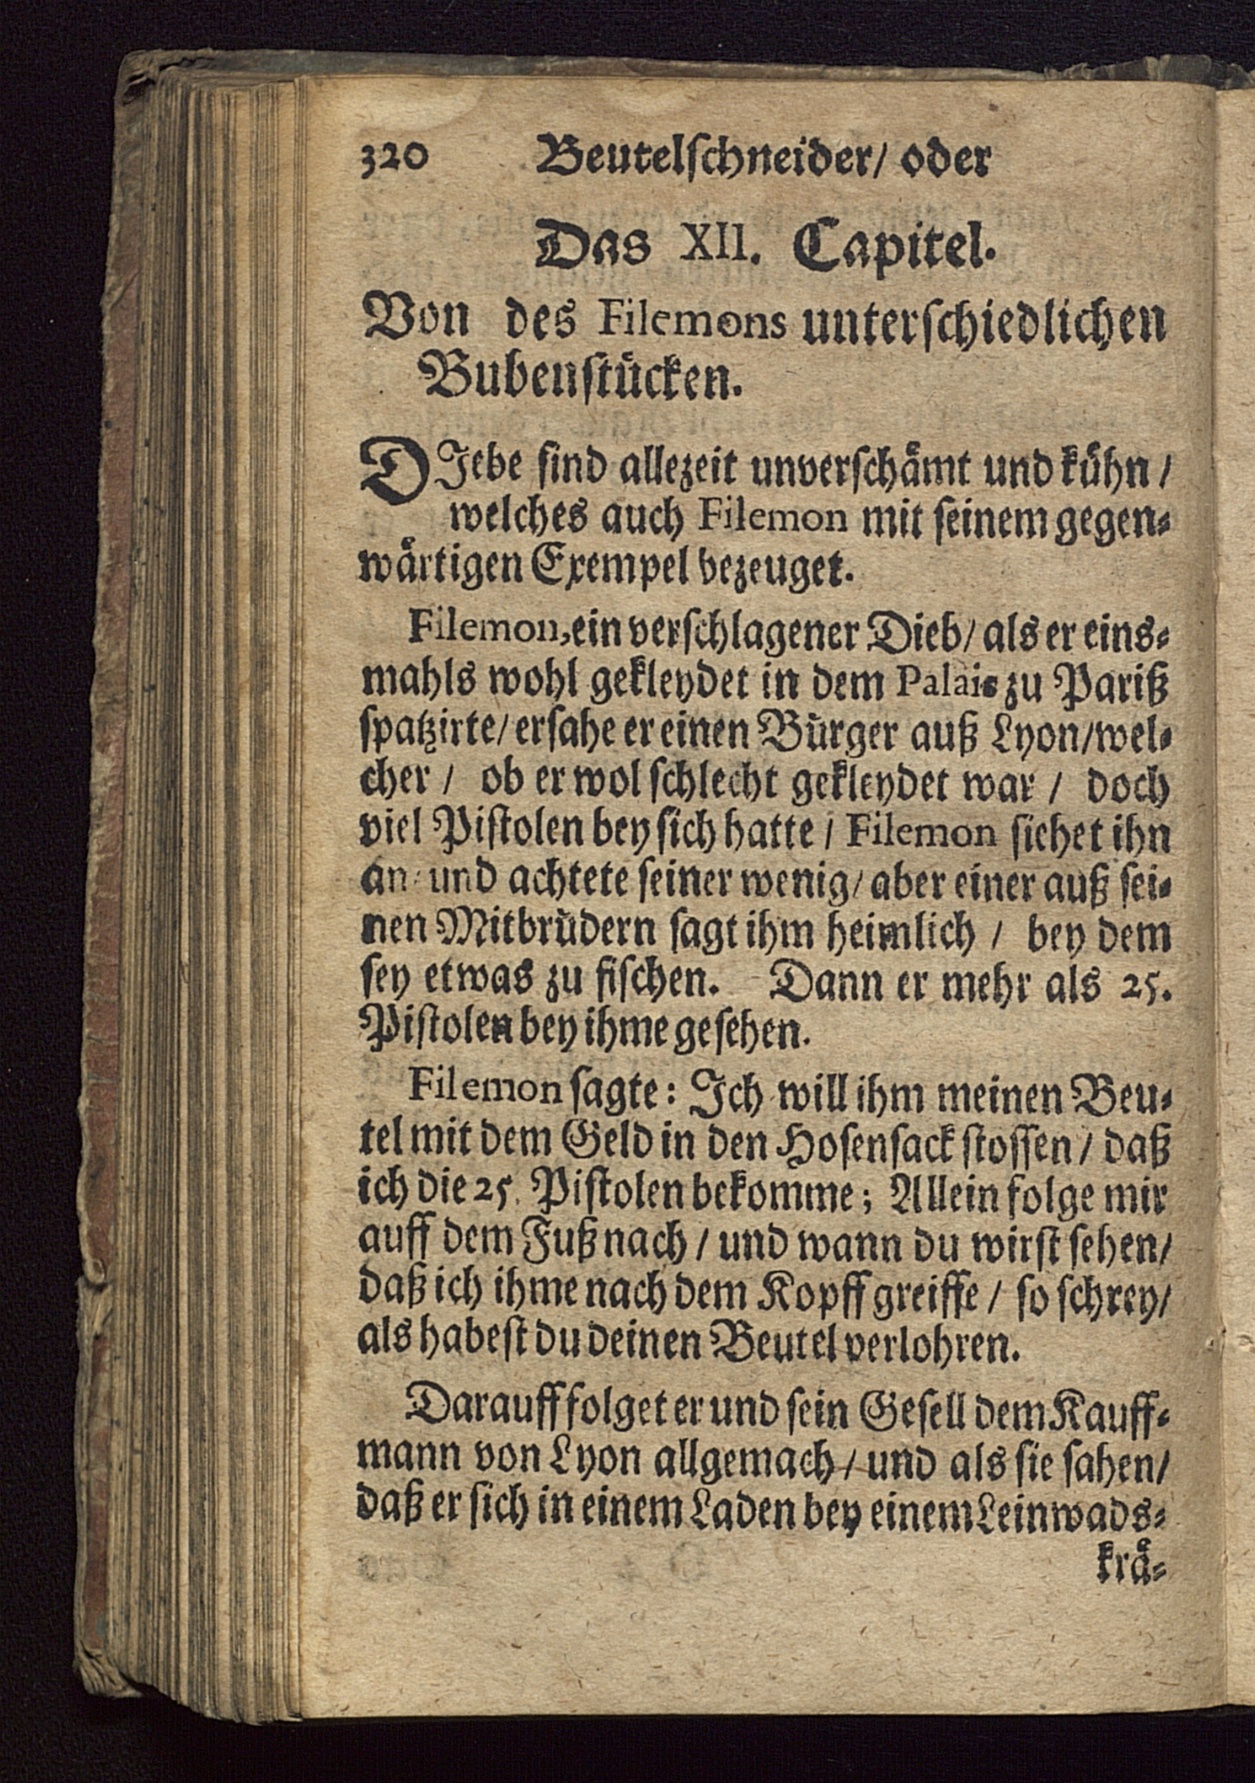 320 Beutelſchneider/ oder
Das XII. Capitel.
Von des Filemons unterſchiedlichen
Bubenſtuͤcken.
DIebe ſind allezeit unverſchaͤmt und kuͤhn /
welches auch Filemon mit ſeinem gegen⸗
waͤrtigen Exempel bezeuget.
Filemon, ein verſchlagener Dieb/ als er eins⸗
mahls wohl gekleydet in dem Palais zu Pariß
ſpatzirte/ erſahe er einen Buͤrger auß Lyon/ wel⸗
cher / ob er wol ſchlecht gekleydet war / doch
viel Piſtolen bey ſich hatte / Filemon ſiehet ihn
an/ und achtete ſeiner wenig/ aber einer auß ſei⸗
nen Mitbruͤdern ſagt ihm heimlich / bey dem
ſey etwas zu fiſchen. Dann er mehr als 25.
Piſtolen bey ihme geſehen.
Filemon ſagte: Ich will ihm meinen Beu⸗
tel mit dem Geld in den Hoſenſack ſtoſſen / daß
ich die 25. Piſtolen bekomme; Allein folge mir
auff dem Fuß nach / und wann du wirſt ſehen/
daß ich ihme nach dem Kopff greiffe / ſo ſchrey/
als habeſt du deinen Beutel verlohren.
Darauff folget er und ſein Geſell dem Kauff⸗
mann von Lyon allgemach / und als ſie ſahen/
daß er ſich in einem Laden bey einem Leinwads⸗
kraͤ⸗